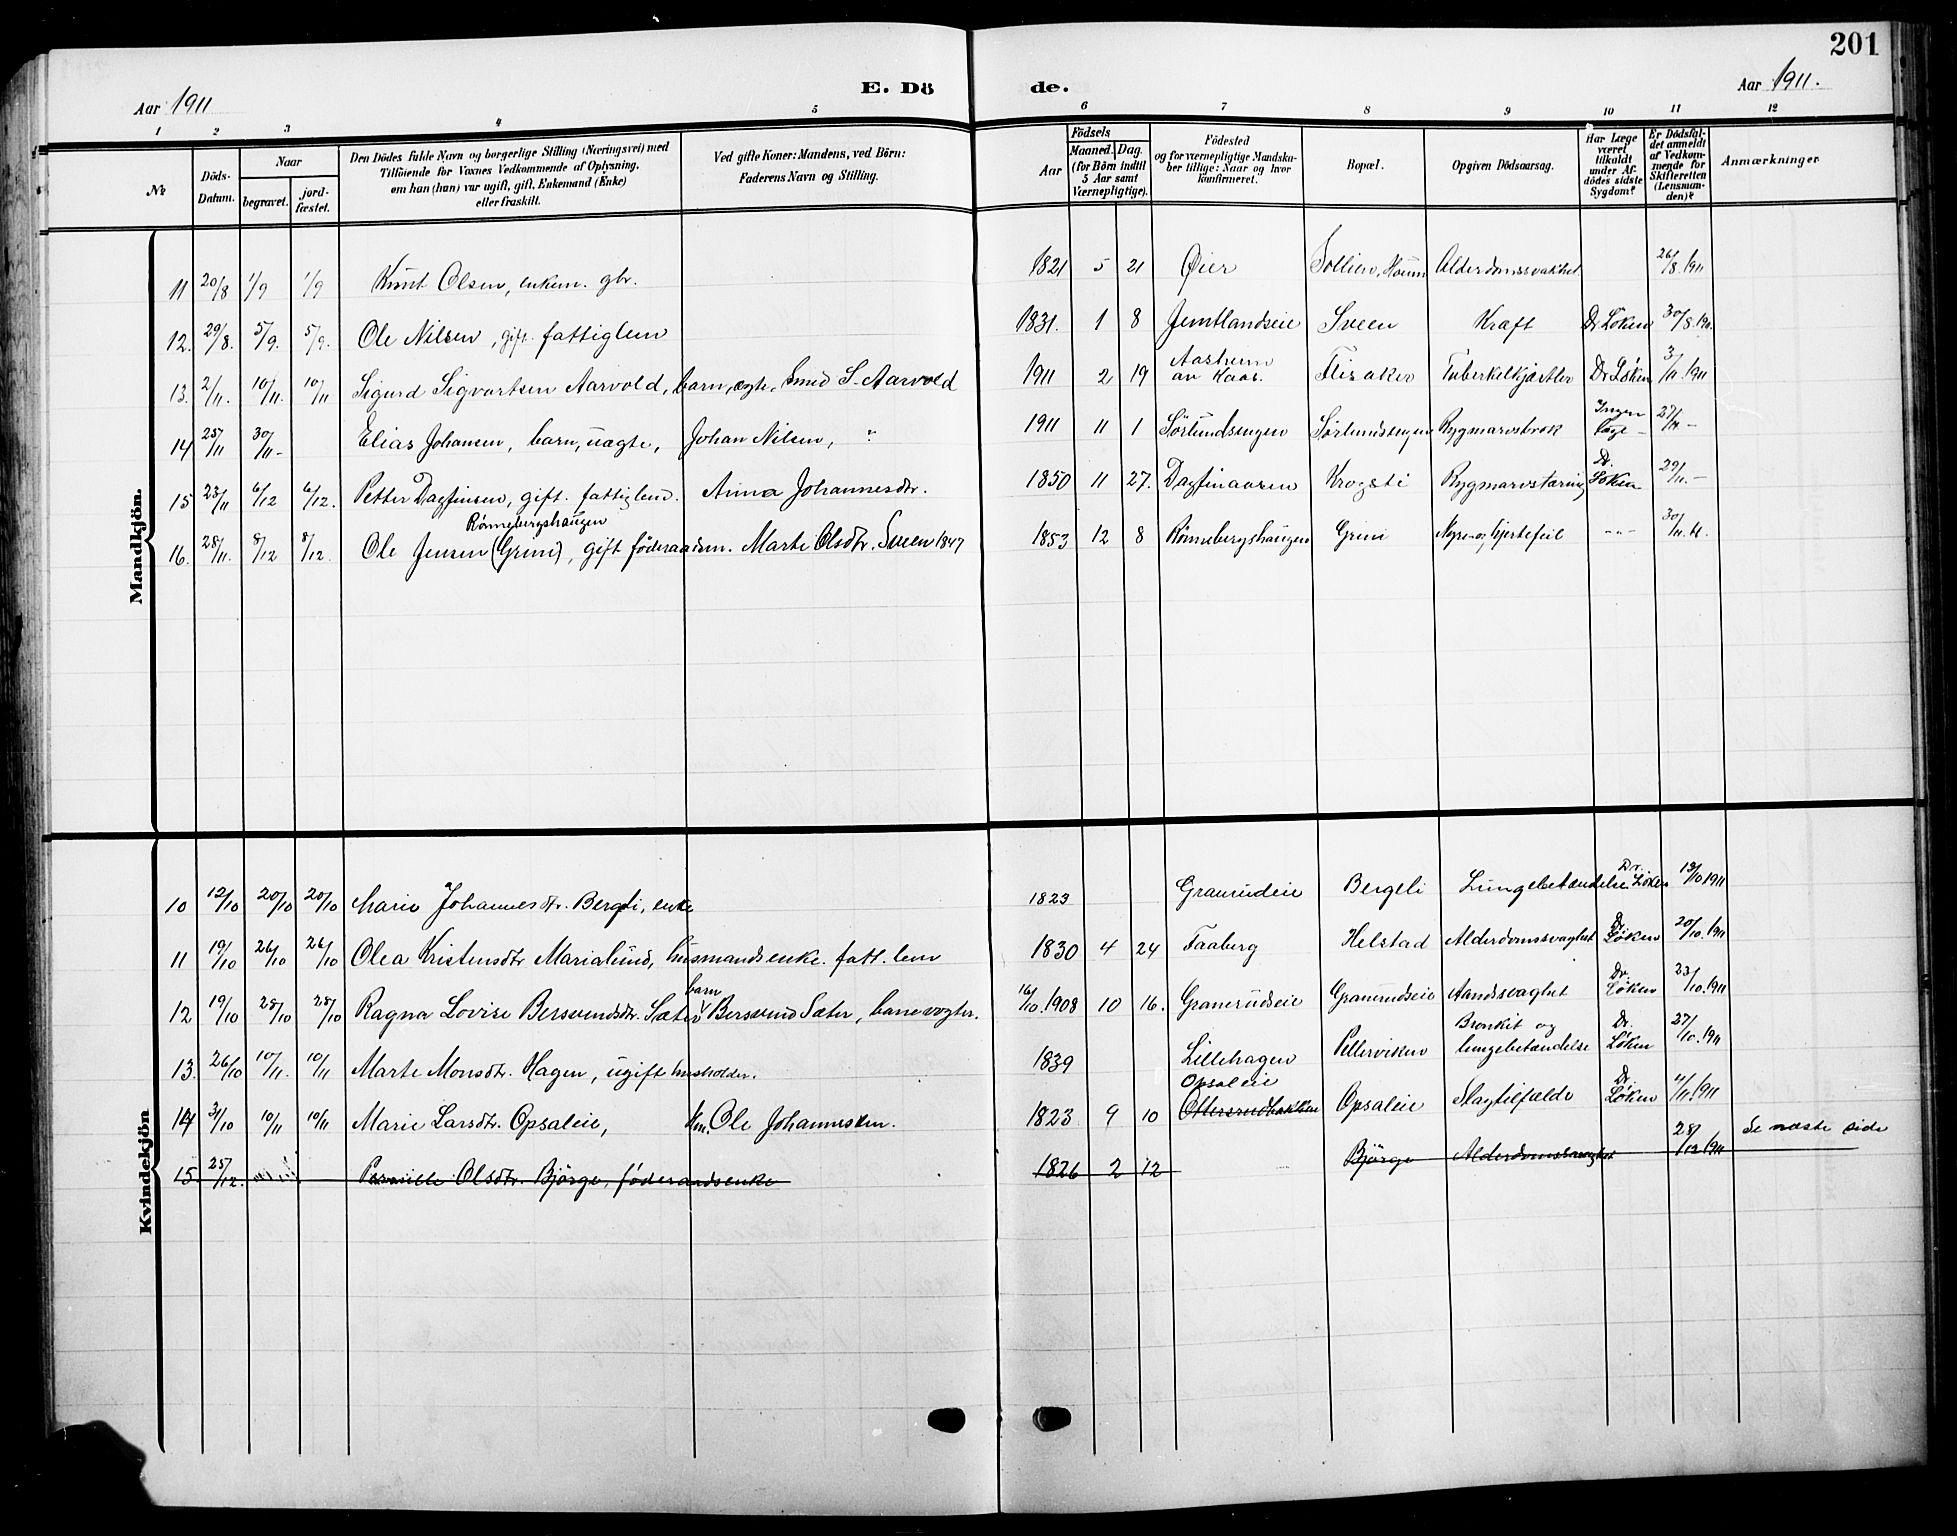 201
Aar 1911
E. Dö de.
Aar 1911.
1 2 3 4 5 6 7 8 9 10 11 12
No
Döds-Datum.
Naar
begravet.
jord-fæstet.
Den Dödes fulde Navn og borgerlige Stilling (Næringsvei) med Tilföiende for Voxnes Vedkommende af Oplysning, om han (hun) var ugift, gift, Enkemand (Enke) eller fraskilt.
Ved gifte Koner: Mandens, ved Börn: Faderens Navn og Stilling.
Födsels
Aar
Maaned. Dag.
(for Börn indtil 5 Aar samt Værnepligtige).
Födested og for værnepligtige Mandskaber tillige: Naar og hvor konfirmeret.
Bopæl.
Opgiven Dödsaarsag.
Har Læge været tilkaldt under Afdödes sidste Sygdom?
Er Dödsfaldet anmeldt af Vedkommende for Skifteretten (Lensmanden)?
Anmærkninger
Mandkjön.
11 20/8 1/9 1/9 Knut Olsen, enkem. gbr. 1821 5 21 Øier Sollien, Alderdomssvakhet 26/8 1911
12. 29/8. 5/9. 5/9. Ole Nilsen, gift. fattiglem 1831. 1 8 Jemtlandseie Sveen Kræft Dr Løken 30/8. 1911
13. 2/11. 10/11. 10/11 Sigurd Sigvartsen Aarvold, barn, ægte, Smed S. Aarvold 1911 2 19 Aasheim av Kaas. Flisaker Tuberkelkjærtler Dr Løken 3/11 1911
14 25/11 30/11 - Elias Johansen, barn, uægte, Johan Nilsen, ? 1911 11 1 Sørlundsengen Sørlundsengen Rygmarvsbrok Ingen læge - 27/11 -
15 23/11 6/12 6/12. Petter Dagfinsen, gift. fattiglem. Anna Johannesdtr. 1850 11 27. Dagfinaasen Krogsti Rygmarvstæring Dr. Løken 29/11. -
Rønnebergshaugen
16. 28/11. 8/12 8/12. Ole Jensen (Grini), gift føderaadsm. Marte Olsdtr. Sveen 1847 1853 12 8 Rønnebergshaugen Grini Nyre- og hjertefeil - " - 30/11. 11.
Kvindekjön
10 12/10 20/10 20/10 Marie Johannesdtr. Bergli, enke 1823 Granrudeie Bergeli Lungebetændelse Dr. Løken 13/10 1911
11 19/10 26/10 26/10 Olea Kristensdtr Marialund, husmandsenke. fatt. lem 1830 4 24 Faaberg Helstad Alderdomssvaghet Dr Løken 20/10. 1911
12 19/10 28/10 28/10 Ragna Lovise Bersvendsdtr. Sæter barn v Bersvend Sæter, banevogter. 16/10. 1908 10 16. Granerudseie Granerudseie Aandsvaghet Dr. Løken 23/10. 1911
13. 26/10 10/11. 10/11 Marte Monsdtr. Hagen, ugift husholder. 1839 Lillehagen Pellerviken Bronkit og lungebetændelse Dr. Løken 27/10. 1911
14 31/10 10/11 10/11 Marie Larsdtr. Opsaleie, km. Ole Johannesken. 1823 9 10 Opsaleie Ottersrudbakken Opsaleie Slagtilfælde Dr. Løken 4/11. 1911
15. 25/12. Pernille Olsdtr. Bjørge, føderaadsenke 1826 2 12 Bjørge Alderdomssvaghet 28/12 1911 Se næste side